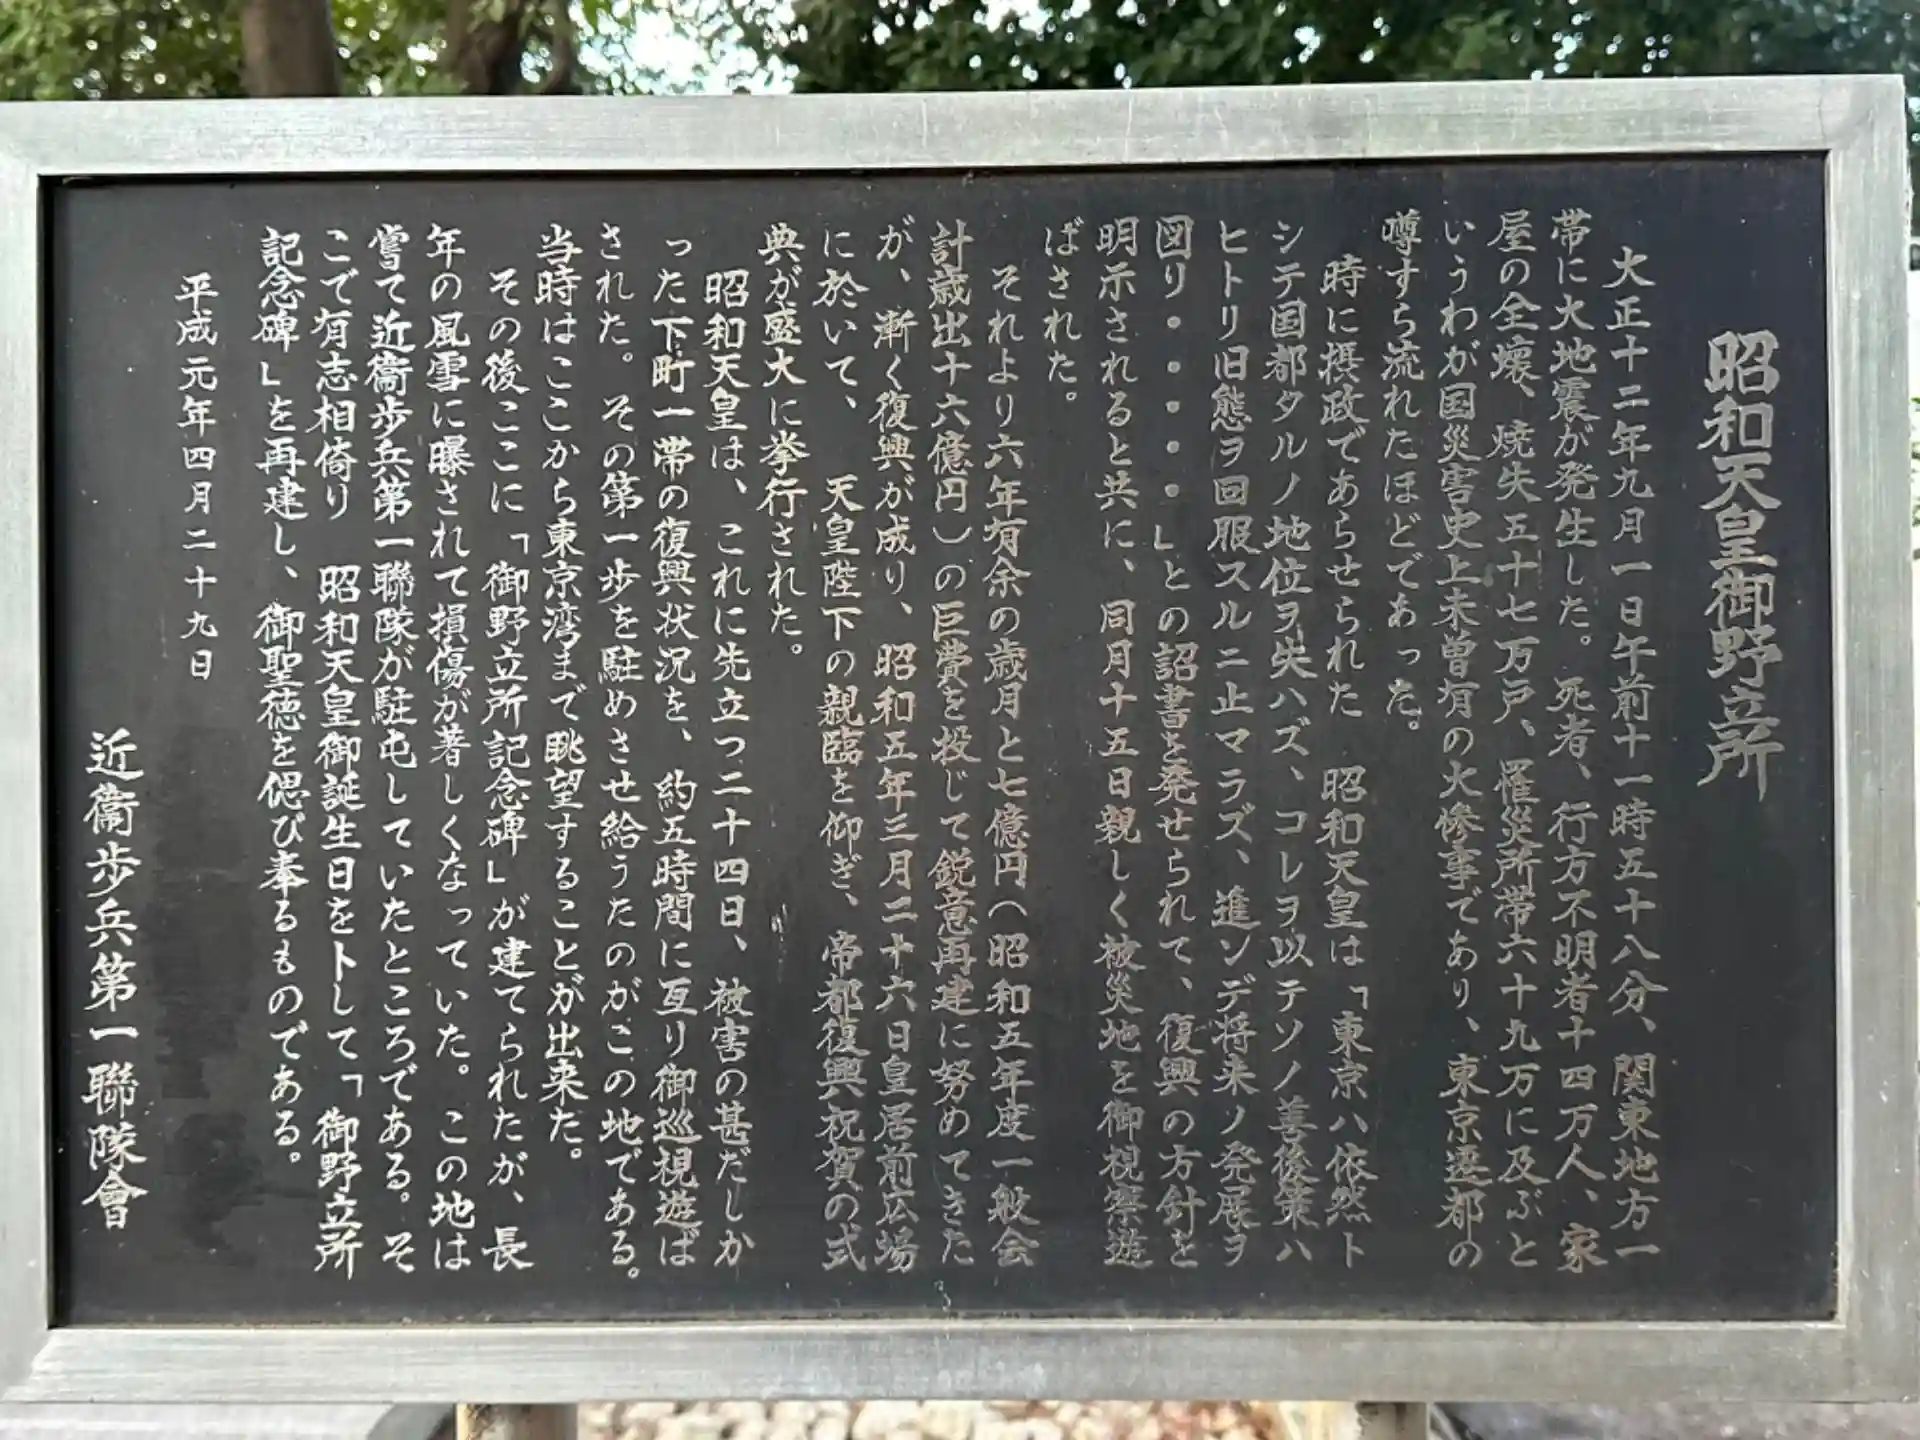 昭和天皇御野立所
大正十二年九月一日午前十一時五十八分、関東地方一
帯に大地震が発生した。死者、行方不明者十四万人、家
屋の全壊、焼失五十七万戸、罹災所帯六十九万に及ぶと
いうわが国災害史上未曽有の大惨事であり、東京遷都の
噂すら流れたほどであった。
時に摂政であらせられた 昭和天皇は「東京ハ依然ト
シテ国都タルノ地位ヲ失ハズ、コレヲ以テソノ善後策ハ
ヒトリ旧態ヲ回服スルニ止マラズ、進ソデ将来ノ発展ヲ
図リ・・・・・」との詔書を発せられて、復興の方針を
明示されると共に、同月十五日親しく被災地を御視察遊
ばされた。
それより六年有余の歳月と七億円(昭和五年度一般会
計歳出十六億円)の巨費を投じて鋭意再建に努めてきた
が、漸く復興が成り、昭和五年三月二十六日皇居前広場
に於いて、 天皇陛下の親臨を仰ぎ、帝都復興祝賀の式
典が盛大に挙行された。
昭和天皇は、これに先立つ二十四日、被害の甚だしか
った下町一帯の復興状況を、約五時間に亙り御巡視遊ば
された。その第一歩を駐めさせ給うたのがこの地である。
当時はここから東京湾まで眺望することが出来た。
その後ここに「御野立所記念碑」が建てられたが、長
年の風雪に曝されて損傷が著しくなっていた。この地は
嘗て近衞歩兵第一聯隊が駐屯していたところである。そ
こで有志相倚り 昭和天皇御誕生日を卜して「御野立所
記念碑」を再建し、御聖徳を偲び奉るものである。
平成元年四月二十九日
近衞歩兵第一聯隊會